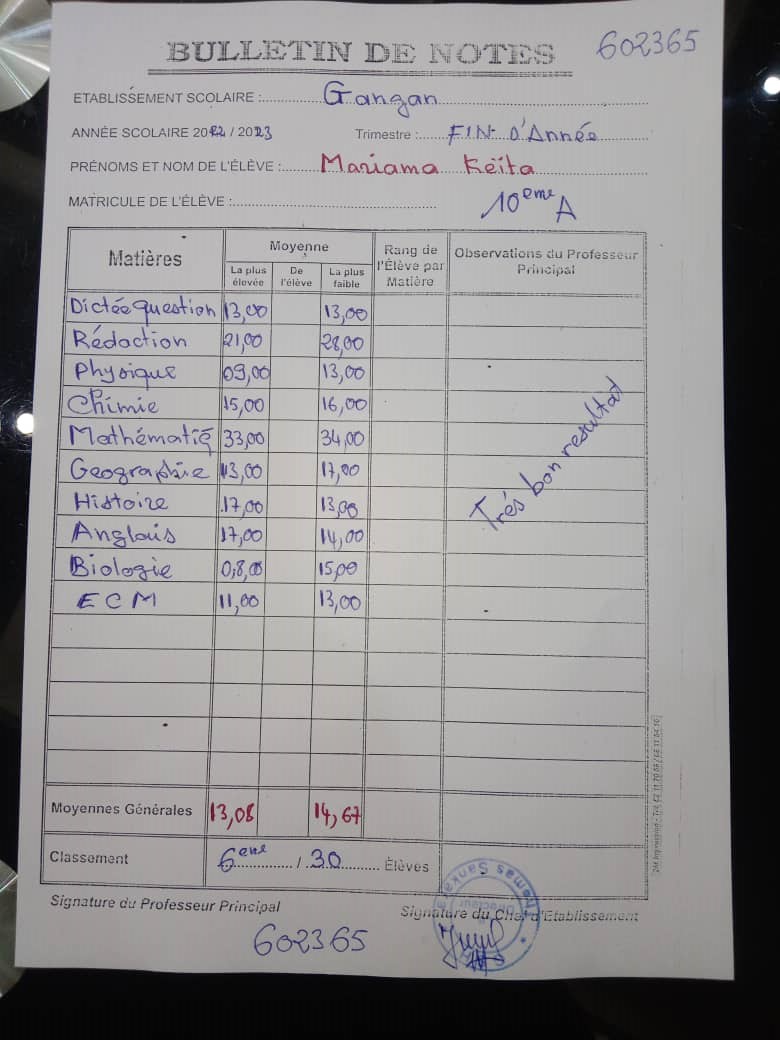 BULLETIN DE NOTES 602365
ETABLISSEMENT SCOLAIRE : Gangan
ANNÉE SCOLAIRE 2022 / 2023 Trimestre : FIN D'Année
PRÉNOMS ET NOM DE L'ÉLÈVE : Mariama Keïta
MATRICULE DE L'ÉLÈVE : 10eme A
Matières Moyenne Rang de l'Élève par Matière Observations du Professeur Principal
La plus élevée De l'élève La plus faible
Dictée question 13,00 13,00
Rédaction 21,00 28,00
Physique 09,00 13,00
Chimie 15,00 16,00
Mathématiq 33,00 34,00
Geographie 13,00 17,00
Histoire 17,00 13,00
Anglais 17,00 14,00
Biologie 0,8,00 15,00
E C M 11,00 13,00
Trés bon resultat
Moyennes Générales 13,08 14,67
Classement 6eme / 30 Élèves
Signature du Professeur Principal Signature du Chef d'Etablissement
602365